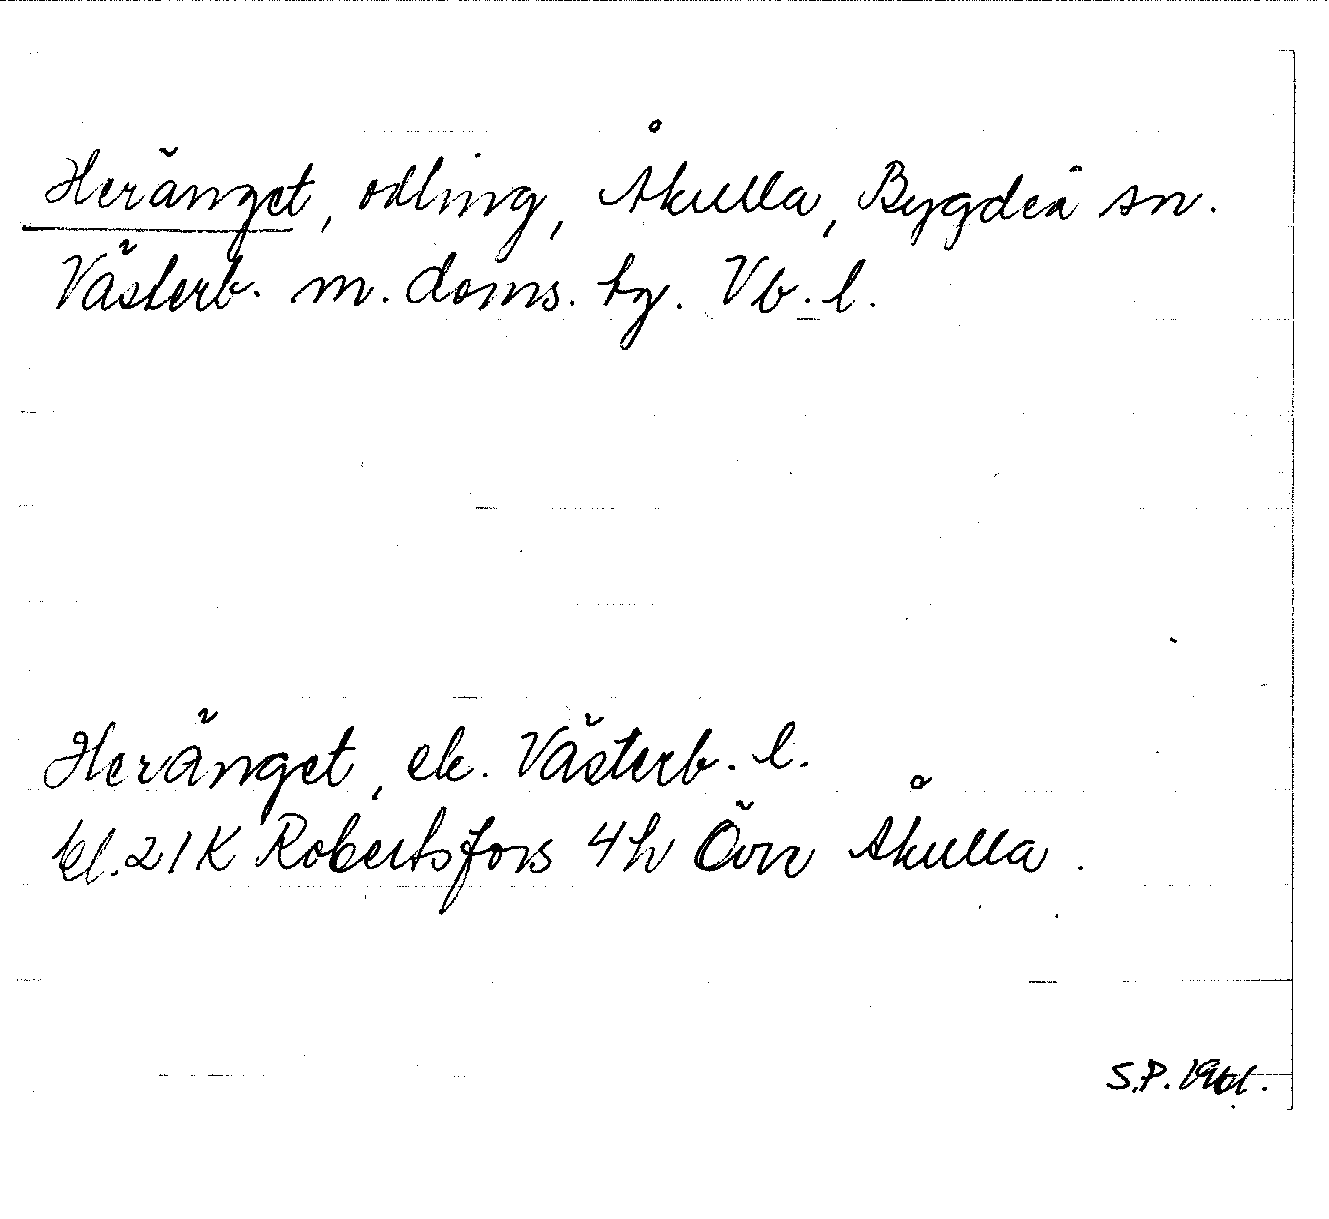 Heränget, odling, Åkulla, Bygdeå sn.
Västerb. m. doms. tg. Vb. l.
Heränget, ek. Västerb. l.
bl. 21K Robertsfors 4h Övr Åkulla.
S.P. 1961.